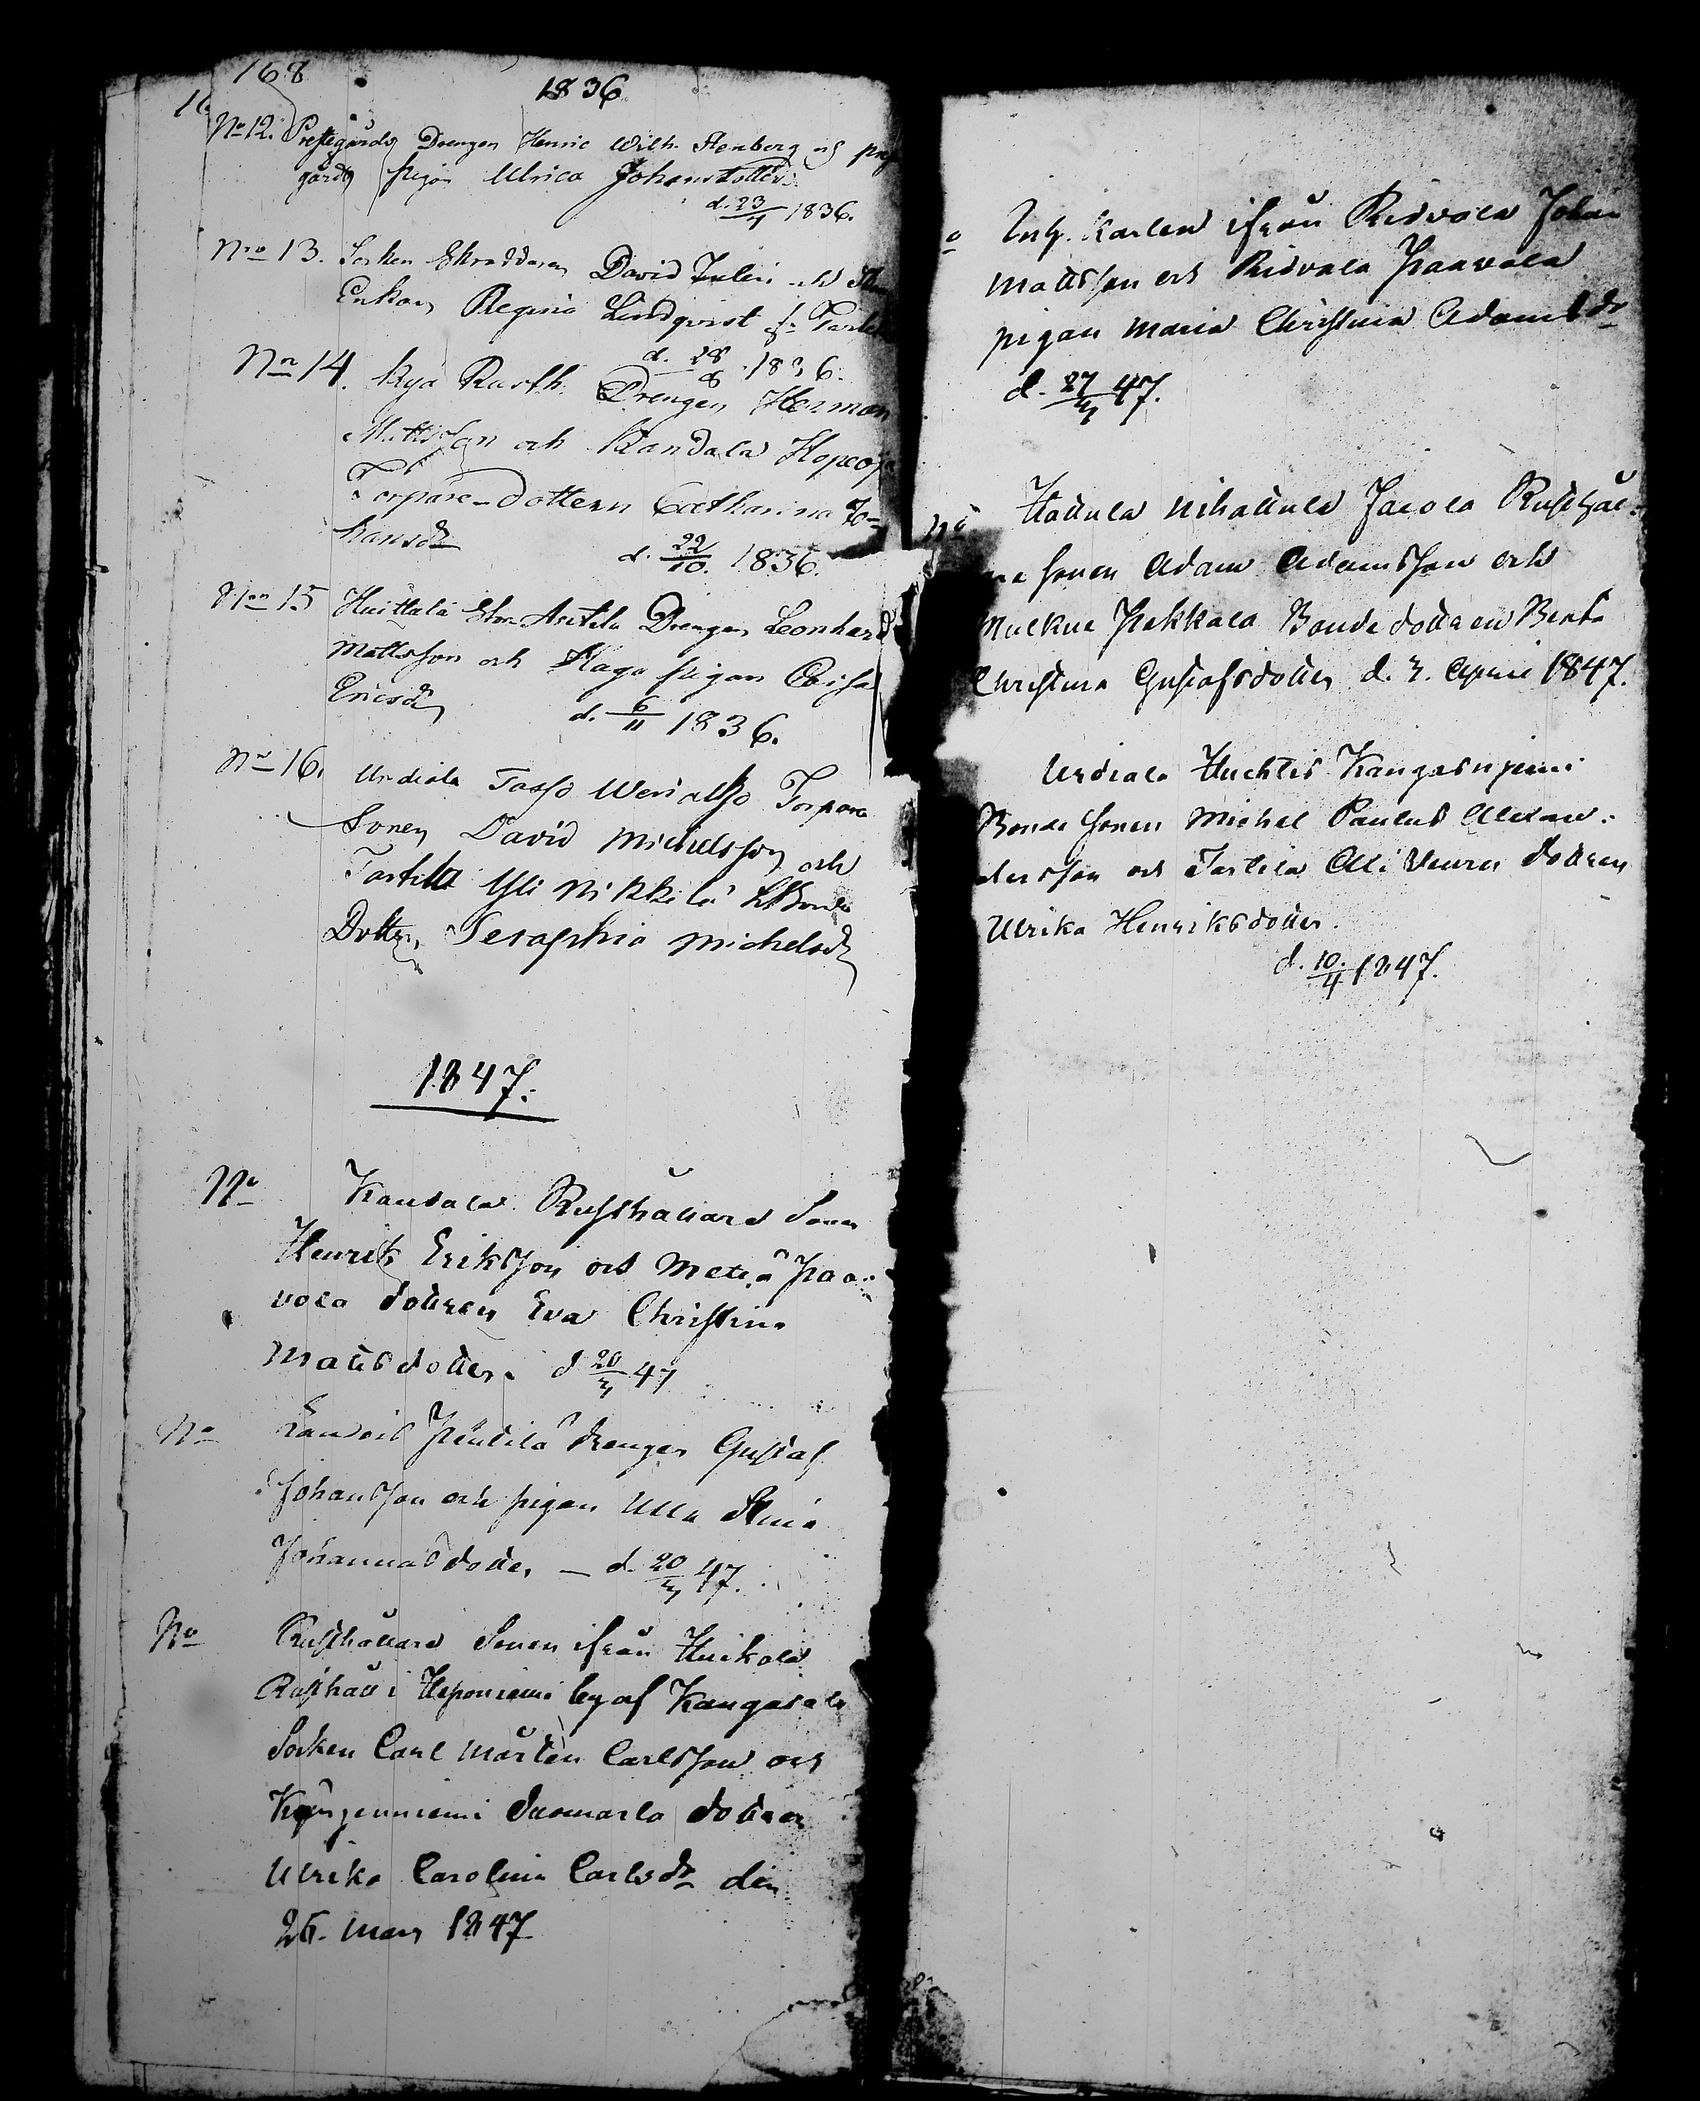 168
1836
No 12. Prestegårds Drengen Henric Wilh. Stenberg och
gårds pigan Ulrica Johansdotter
d. 23/4 1836.
No 13. Socken Skräddaren David och
Enkan Regina Lindqvist fr.
d. 28/8 1836.
No 14. Rusth. Drengen Herman
Mattsson och Kandala
Torpare-dottern Catharina Jo-
hansdr
d. 22/10. 1836.
No 15 Huittula Drengen Leonhard
Mattsson och Haga pigan
Ericsdr
d. 6/11 1836.
No 16. Urdiala Torpare
Sonen David Michelsson och
Tarttila Yli Nikkilä
Dotter, Seraphia Michelsdr
1847.
No Kandala Rusthållare Sonen
Henrik Eriksson och Paa-
vola dottren Eva Christina
Mattsdotter. d 20/3 47
No Penttilä drengen Gustaf
Johansson och pigan Ulla Stina
Johannesdotter — d. 20/3 47.
No Rusthållare Sonen ifrån Huikala
Rusthåll i Heponiemi by af Kangasala
Socken Carl Mårten Carlsson och
dottren
Ulrika Carolina Carlsdr den
26. Mars 1847
Inh. Karlen ifrån Ridvala Johan
Mattsson och Ridvala Paavola
pigan Maria Christina Adamsdr
d. 27/3 47.
No Jacola Rusthål-
sonen Adam Adamsson och
Mulkue Pekkala Bonde dottren
Christina Gustafsdotter d. 3. April 1847.
Urdiala Huchtis Kangasniemi
Bonde Sonen Michel Paulus Alexan-
dersson och Tartila dottren
Ulrika Henriksdotter.
d. 10./4 1847.